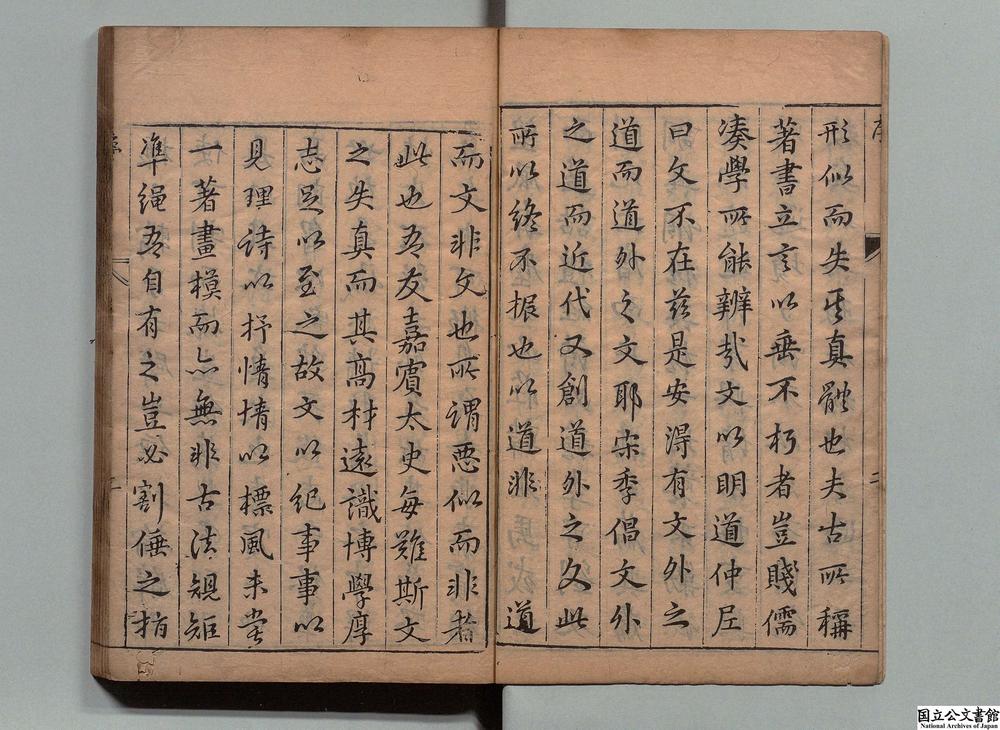 形似而失其真體也夫古所稱
著書立言以垂不朽者豈賤儒
湊學所能辨哉文以明道仲尼
曰文不在茲是安淂有文外之
道而道外之文耶宋季倡文外
之道而近代又創道外之文此
所以終不振也以道非道
而文非文也所謂惡似而非者
此也吾友嘉賓太史每難斯文
之失真而其高材遠識博學厚
志足以至之故文以紀事事以
見理詩以抒情情以標風未嘗
一著畫模而亦無非古法規矩
準繩吾自有之豈必割倕之指
序
二
国立公文書館
National Archives of Japan